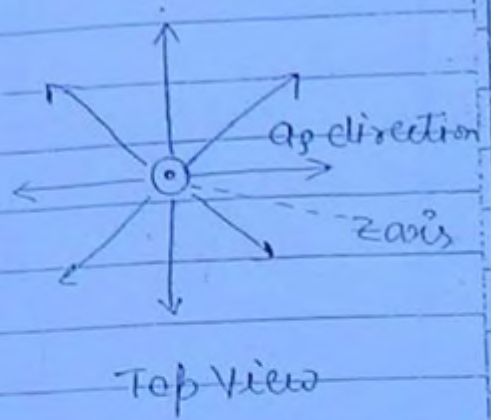 aρ direction
z axis
Top View